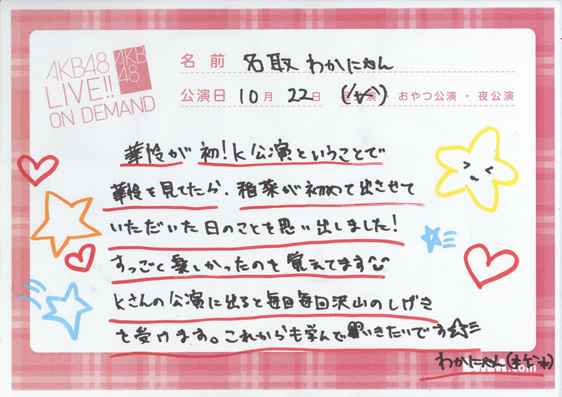 AKB48
LIVE!!
ON DEMAND
AKB
48
名前 名取 わかにゃん
公演日 10月 22日 おやつ公演・夜公演
華怜が初!K公演ということで
華怜を見てたら、稚菜が初めて出させて
いただいた日のことを思い出しました!
すっごく楽しかったのを覚えてます
Kさんの公演に出ると毎回毎回沢山のしげき
を受けます。これからも学んでいきたいです☆
わかにゃん
.com